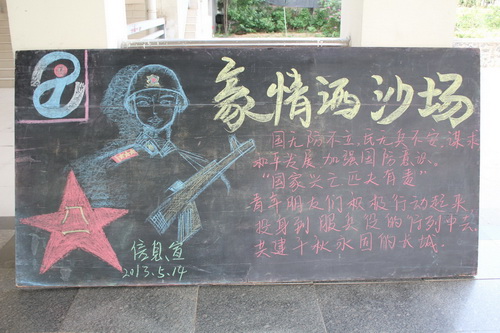 豪情洒沙场
国无防不立，民无兵不安，谋求
和平发展，加强国防意识。
“国家兴亡匹夫有责”
青年朋友们积极行动起来
投身到服兵役的行列中去
共建十秋永固的长城.
信息宣
2013.5.14
八一